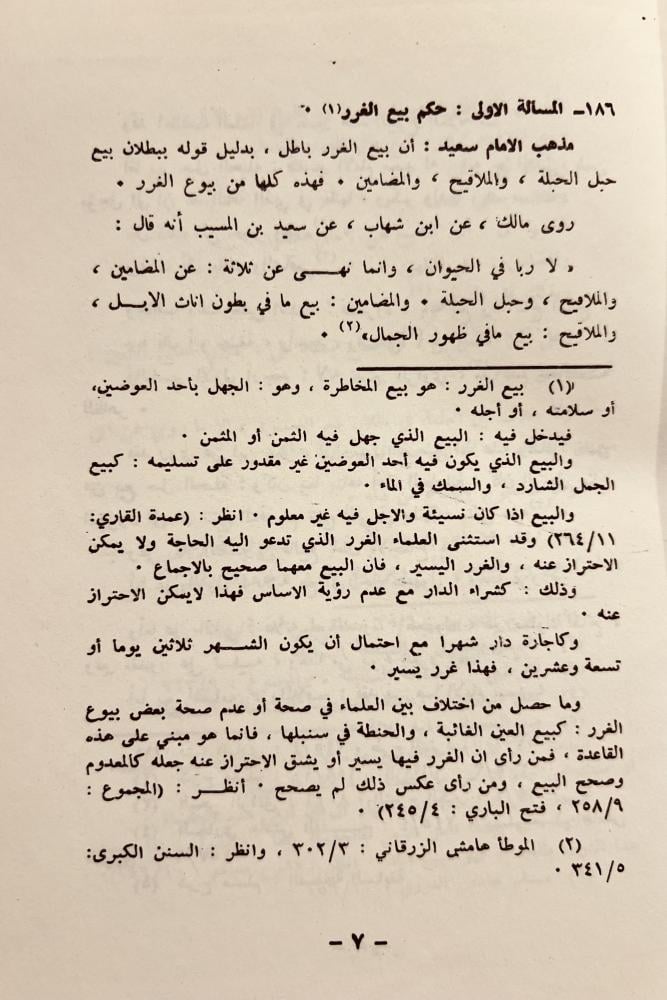 ١٨٦ـ المسألة الاولى : حكم بيع الغرر(١) ٠
مذهب الامام سعيد : أن بيع الغرر باطل ، بدليل قوله ببطلان بيع
حبل الحبلة ، والملاقيح ، والمضامين ٠ فهذه كلها من بيوع الغرر ٠
روى مالك ، عن ابن شهاب ، عن سعيد بن المسيب أنه قال :
« لا ربا في الحيوان ، وانما نهـــى عن ثلاثة : عن المضامين ،
والملاقيح ، وحبل الحبلة ٠ والمضامين : بيع ما في بطون اناث الابـــل ،
والملاقيح : بيع مافي ظهور الجمال»(٢) ٠
(١) بيع الغرر : هو بيع المخاطرة ، وهو : الجهل بأحد العوضين،
أو سلامته ، أو أجله ٠
فيدخل فيه : البيع الذي جهل فيه الثمن أو المثمن ٠
والبيع الذي يكون فيه أحد العوضين غير مقدور على تسليمه : كبيع
الجمل الشارد ، والسمك في الماء ٠
والبيع اذا كان نسيئة والاجل فيه غير معلوم ٠ انظر : (عمدة القاري:
٢٦٤/١١) وقد استثنى العلماء الغرر الذي تدعو اليه الحاجة ولا يمكن
الاحتراز عنه ، والغرر اليسير ، فان البيع معهما صحيح بالاجماع ٠
وذلك : كشراء الدار مع عدم رؤية الاساس فهذا لايمكن الاحتراز
عنه ٠
وكاجارة دار شهرا مع احتمال أن يكون الشـــهر ثلاثين يوما أو
تسعة وعشرين ، فهذا غرر يسير ٠
وما حصل من اختلاف بين العلماء في صحة أو عدم صحة بعض بيوع
الغرر : كبيع العين الغائبة ، والحنطة في سنبلها ، فانما هو مبني على هذه
القاعدة ، فمن رأى ان الغرر فيها يسير أو يشق الاحتراز عنه جعله كالمعدوم
وصحح البيع ، ومن رأى عكس ذلك لم يصحح ٠ أنظـــر : (المجموع :
٢٥٨/٩ ، فتح الباري : ٢٤٥/٤) ٠
(٢) الموطأ هامش الزرقاني : ٣٠٢/٣ ، وانظر : السنن الكبرى:
٣٤١/٥ ٠
– ٧ –